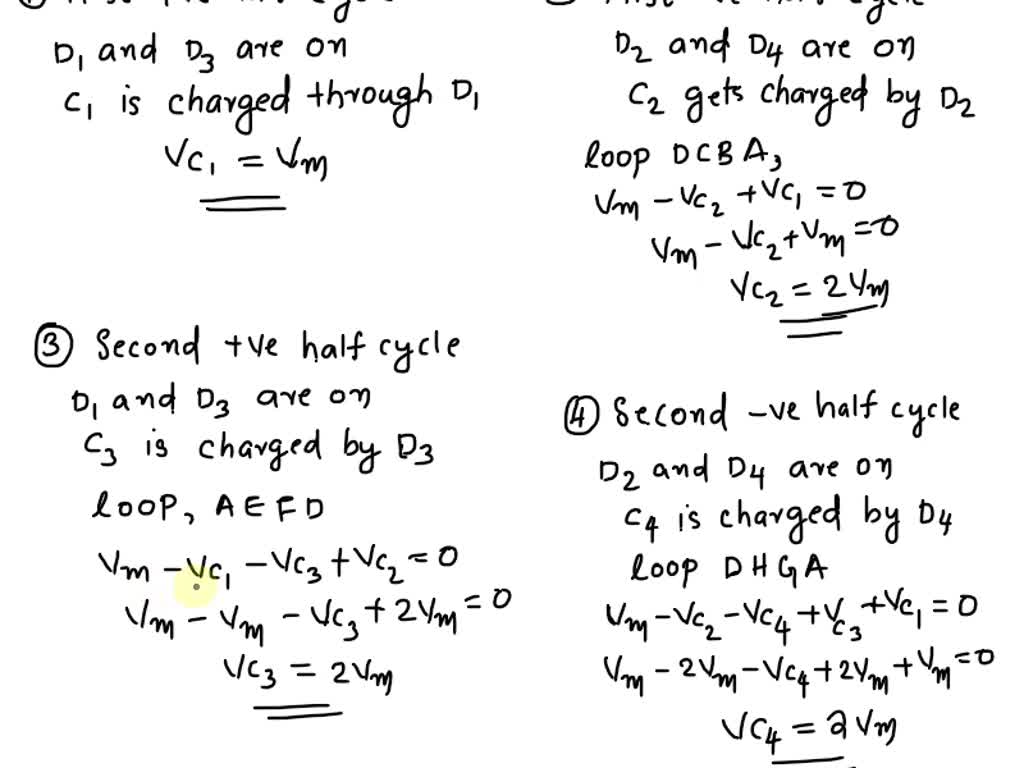 D₁ and D₃ are on
C₁ is charged through D₁
Vc₁ = Vm
D₂ and D₄ are on
C₂ gets charged by D₂
loop DCBA,
Vm - Vc₂ + Vc₁ = 0
Vm - Vc₂ + Vm = 0
Vc₂ = 2Vm
③ Second +ve half cycle
D₁ and D₃ are on
C₃ is charged by D₃
loop, AEFD
Vm - Vc₁ - Vc₃ + Vc₂ = 0
Vm - Vm - Vc₃ + 2Vm = 0
Vc₃ = 2Vm
④ Second -ve half cycle
D₂ and D₄ are on
C₄ is charged by D₄
loop DHGA
Vm - Vc₂ - Vc₄ + Vc₃ + Vc₁ = 0
Vm - 2Vm - Vc₄ + 2Vm + Vm = 0
Vc₄ = 2Vm